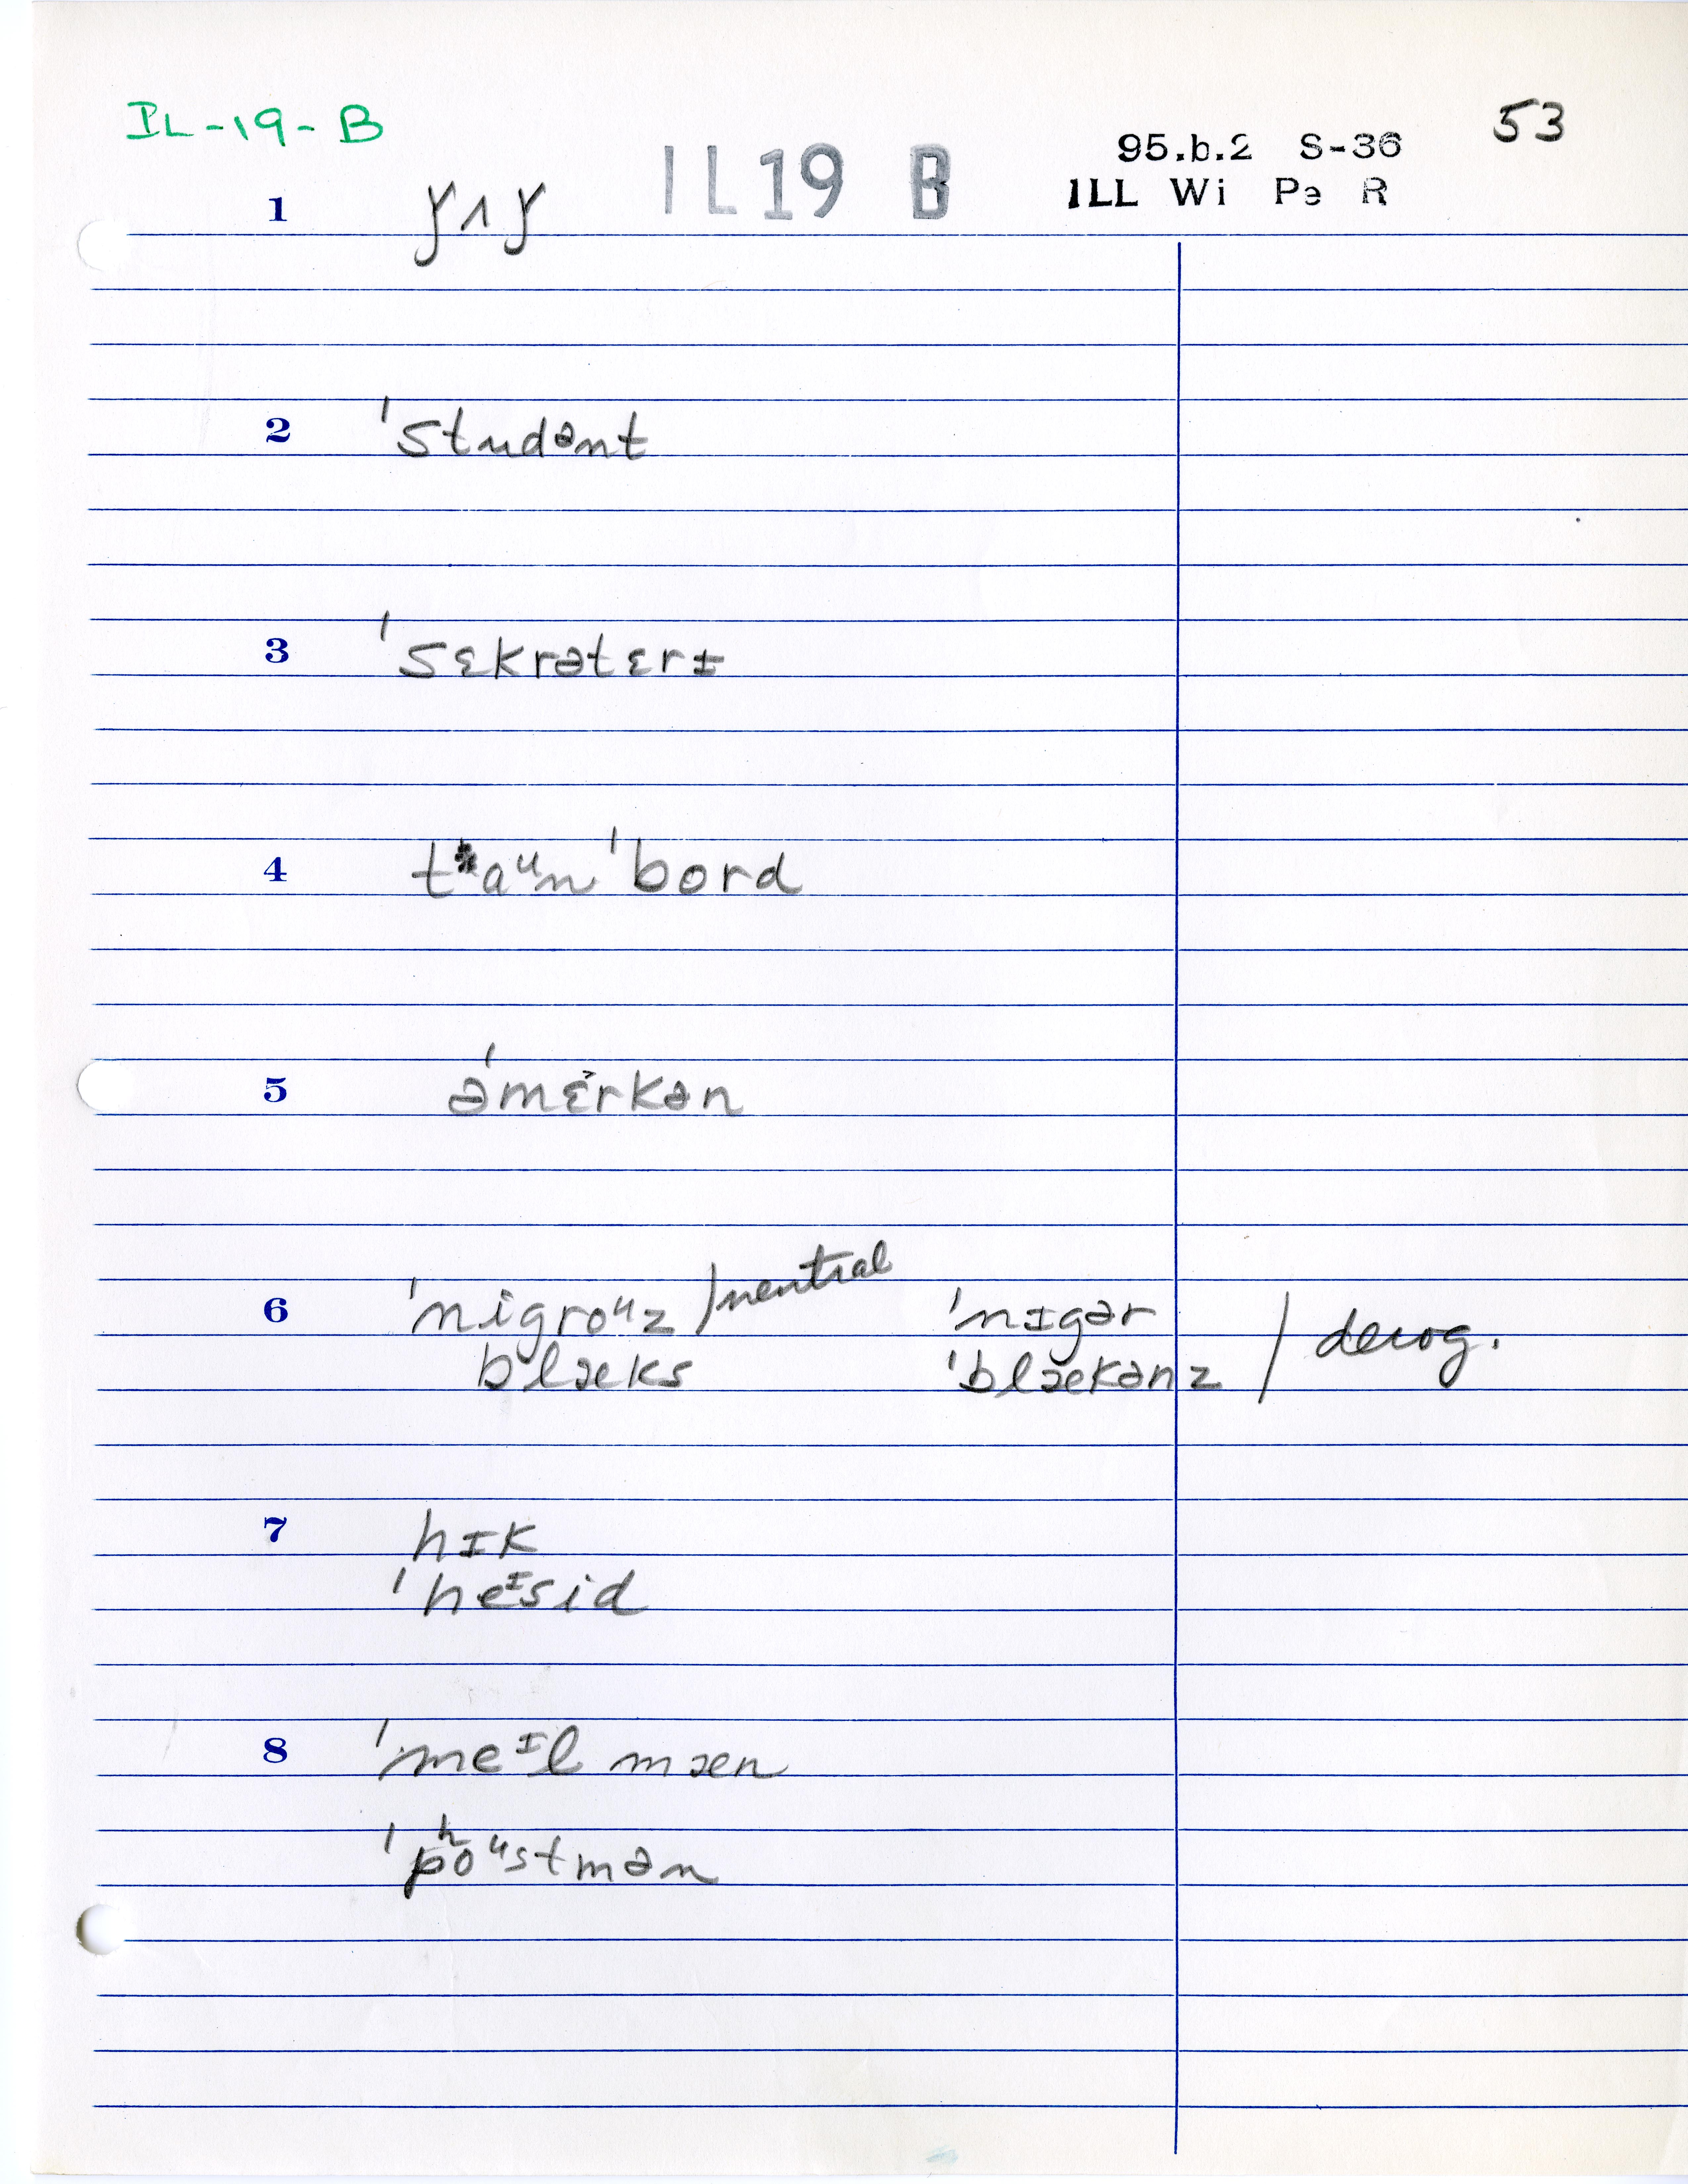 IL-19-B
53
IL19 B
95.b.2 S-36
ILL Wi Pe R
1 ǰʌǰ
2 ˈstudənt
3 ˈsɛkrətɛrɪ
4 taᵘn ˈbord
5 əˈmɛ˃rkən
6 ˈnigroᵘz /neutral ˈnɪgər / derog.
blæks ˈblækənz
7 hɪk
ˈheᶦsid
8 ˈmeᶦl mæn
ˈpʰoᵘstmən